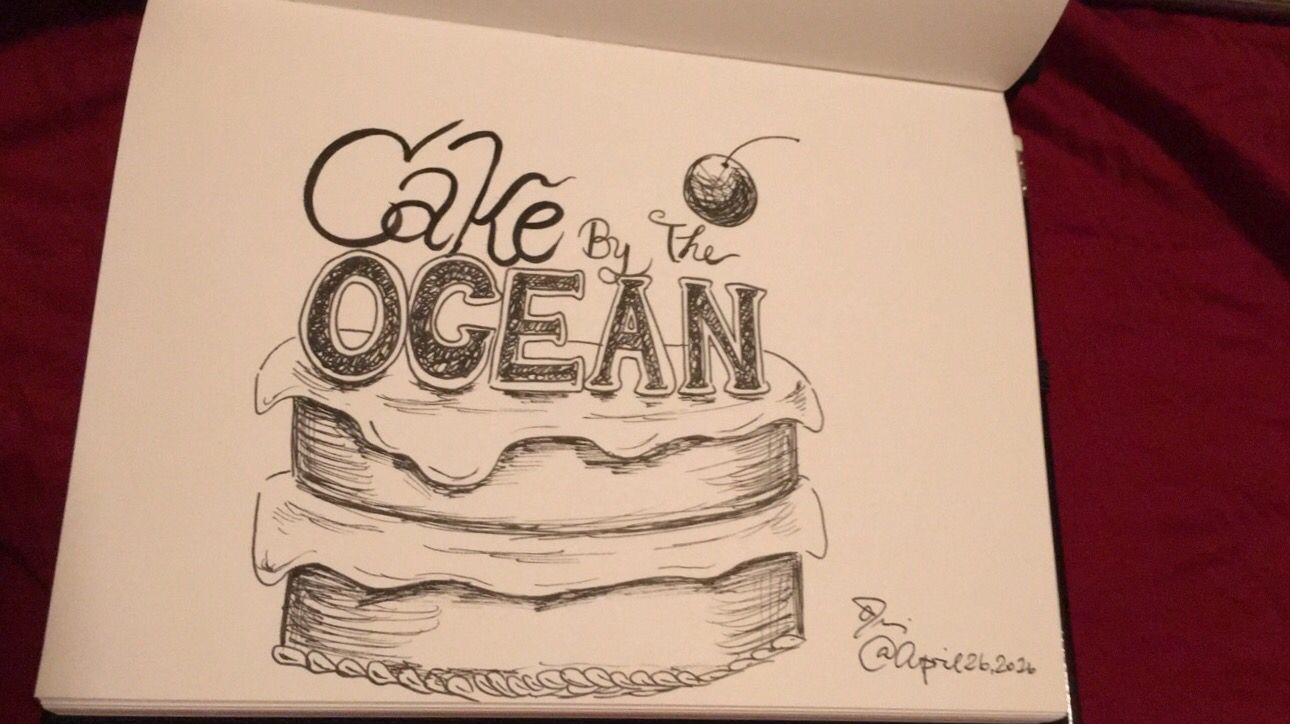 Cake By The
OCEAN
@April 26, 2026